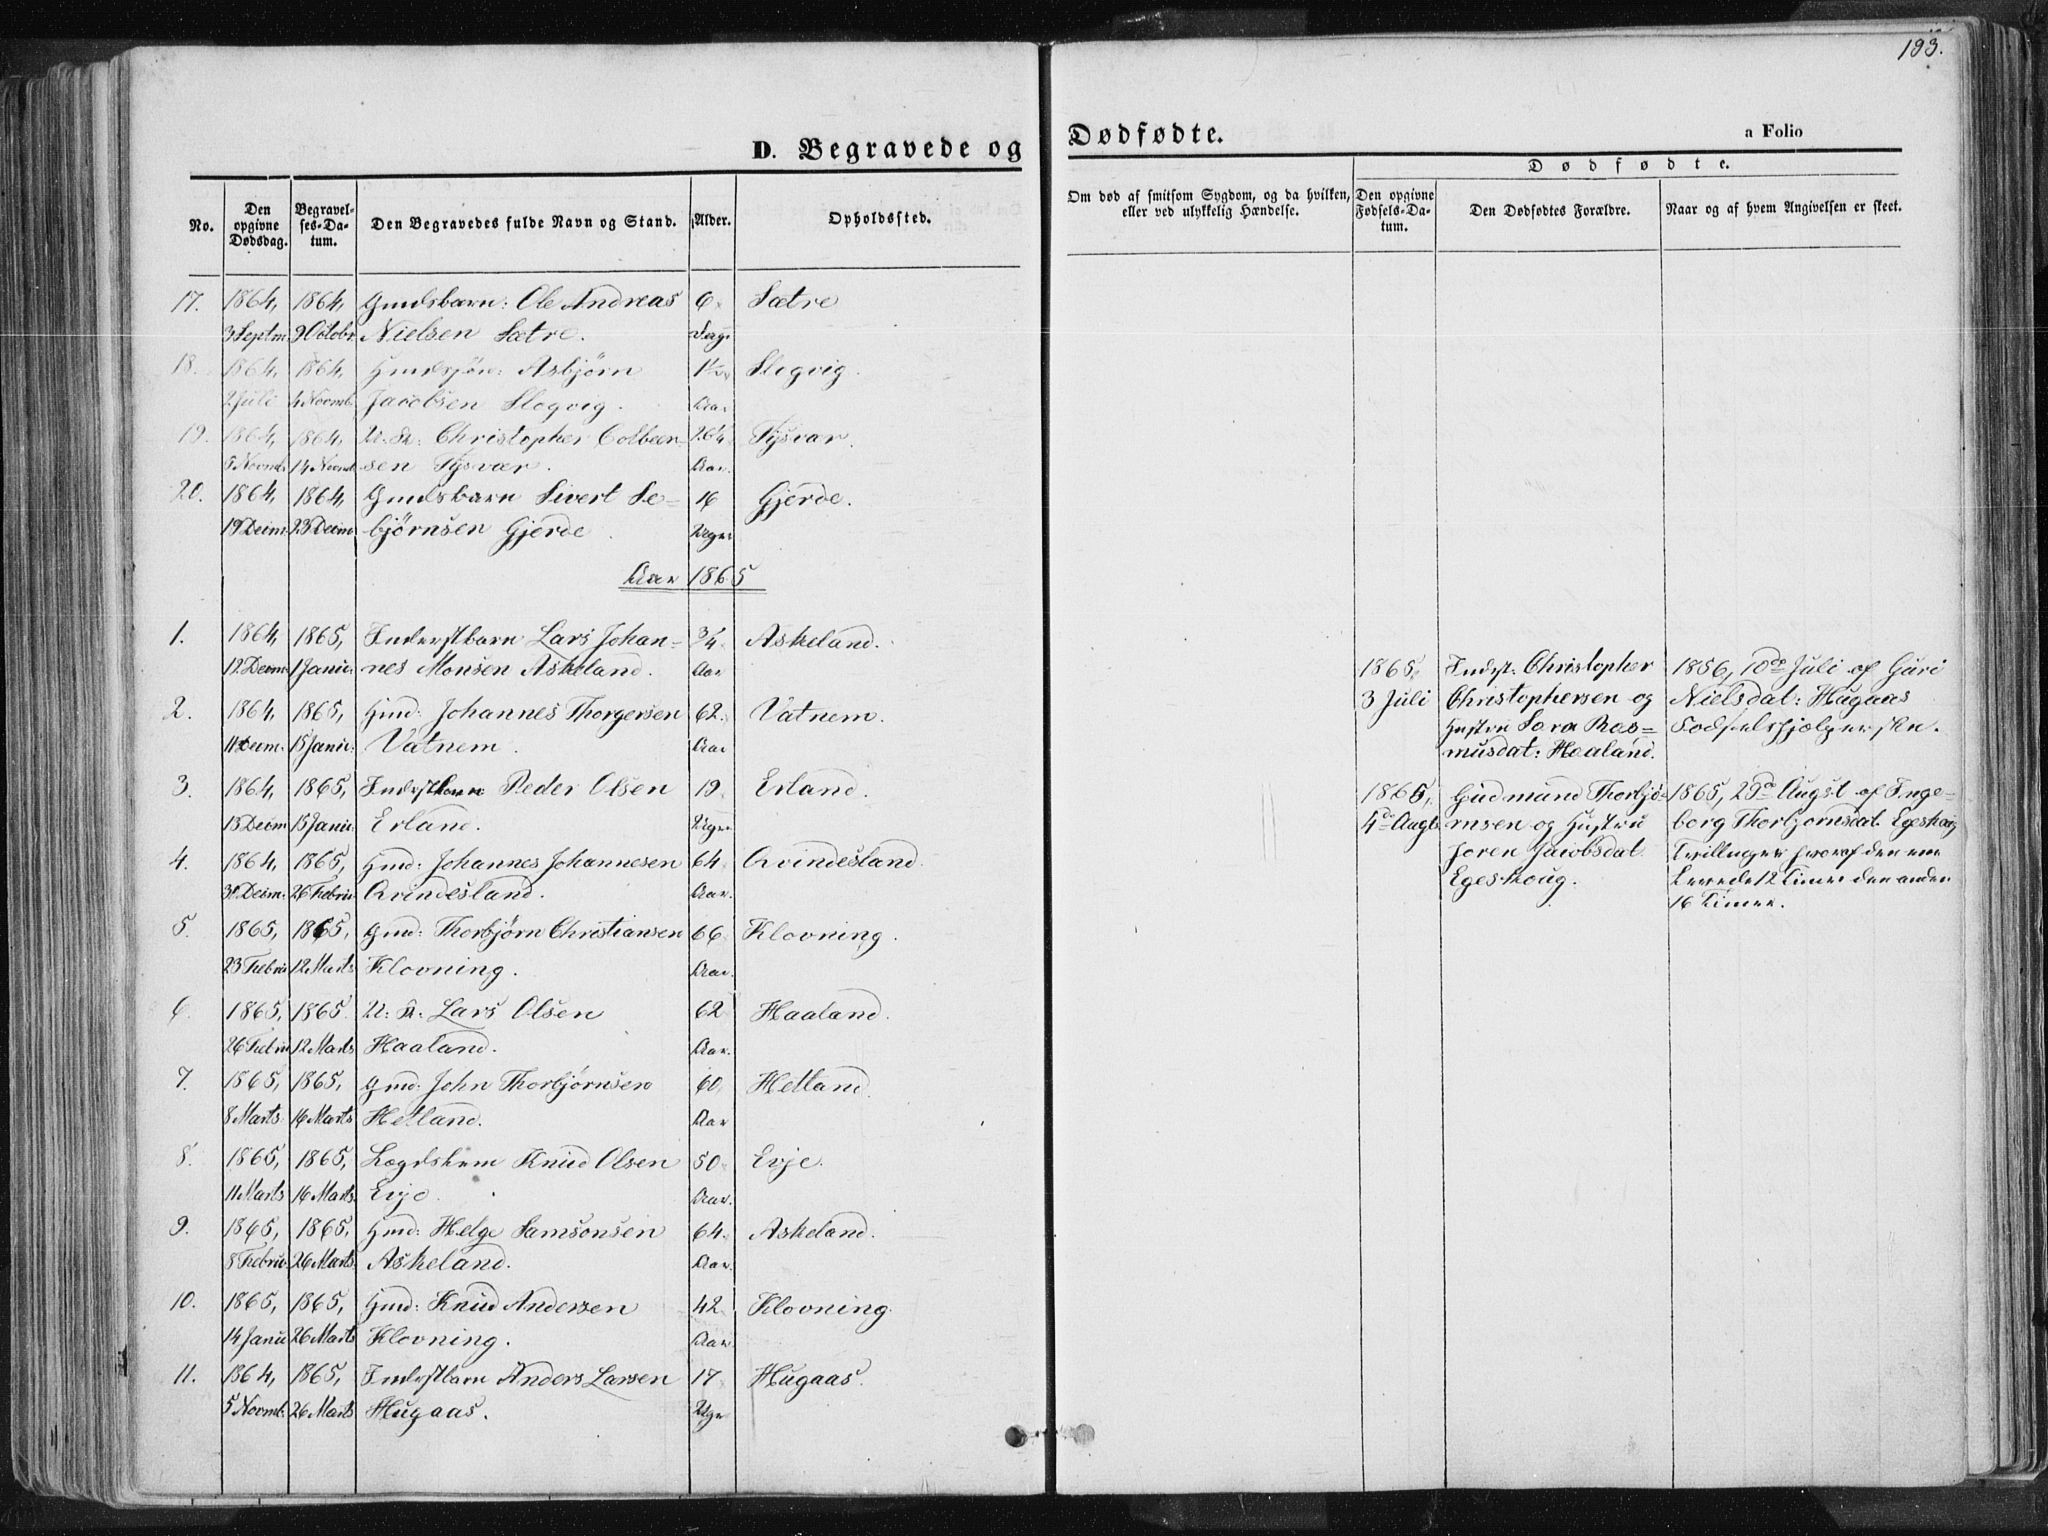 193.
D. Begravede og
Dødfødte.
a Folio
No.
Den opgivne Dødsdag.
Begravelses-Datum.
Den Begravedes fulde Navn og Stand.
Alder.
Opholdssted.
Om død af smitsom Sygdom, og da hvilken, eller ved ulykkelig Hændelse.
Dødfødte.
Den opgivne Fødsels-Datum.
Den Dødfødtes Forældre.
Naar og af hvem Angivelsen er skeet.
17. 1864, 1864, Gmdsbarn: Ole Andreas 6 Sætre
3 Septm 9 Octobr Nielsen Sætre. Dage
18. 1864, 1864, Asbjørn 1½ Slogvig.
2 Juli 4 Novmb. Jacobsen Slogvig. Aar
19. 1864, 1864, Christopher Colbeen- 26¼ Tysvær.
5 Novmb. 14 Novmb. sen Tysvær. Aar.
20. 1864, 1864, Gmdsbarn Sivert Se- 16 Gjerde.
19 Decm. 23 Decm bjørnsen Gjerde. Uger
Aar 1865
1. 1864, 1865, Inderstbarn Lars Johan- 3/4 Askeland.
12 Decm. 1 Janu. nes Monsen Askeland. Aar
2. 1864, 1865, Gmd: Johannes Thorgersen 62. Vatnem.
11 Decm. 15 Janu: Vatnem. Aar
3. 1864, 1865, Inderstbarn Peder Olsen 19. Erland.
13 Decm 15 Janu: Erland. Uger
4. 1864, 1865, Gmd: Johannes Johannesen 64. Qvindesland.
Decm. 26 Febru Qvindesland. Aar.
5. 1865, 1865, Gmd: Thorbjørn Christiansen 66. Klovning.
23 Febru 12 Marts Klovning. Aar.
6. 1865, 1865. Lars Olsen 62 Haaland.
26 Febru 12 Marts Haaland. Aar.
7. 1865, 1865, Gmd: John Thorbjørnsen 60, Hetland.
8 Marts 16 Marts Hetland. Aar
8. 1865, 1865, Lægdslem Knud Olsen 50. Evje.
11 Marts 16 Marts Evje. Aar.
9. 1865, 1865, Gmd: Helge Samsonsen 64. Askeland.
8 Febru. 26 Marts. Askeland. Aar.
10. 1865, 1865, Gmd: Knud Andersen 42. Klovning.
14 Janu 26 Marts Klovning. Aar
11. 1864, 1865, Inderstbarn Anders Larsen 17 Hugaas.
5 Novmb. 26 Marts Hugaas. Uger
1865, Inderst: Christopher 1856, 10de Juli af Guri
3 Juli Christophersen og Nielsdat: Hugaas
Hustru Sara Ras- Fødselshjælpersken.
musdat: Haaland.
1865, Gudmund Thorbjø- 1865, 29de Augst af Inge-
4de Augt. rnsen og Hustru borg Thorbjørnsdat. Egeskoug
Joren Jacobsdat Tvillinger hvoraf den ene
Egeskoug. Levede 12 Timer den anden
16 Timer.